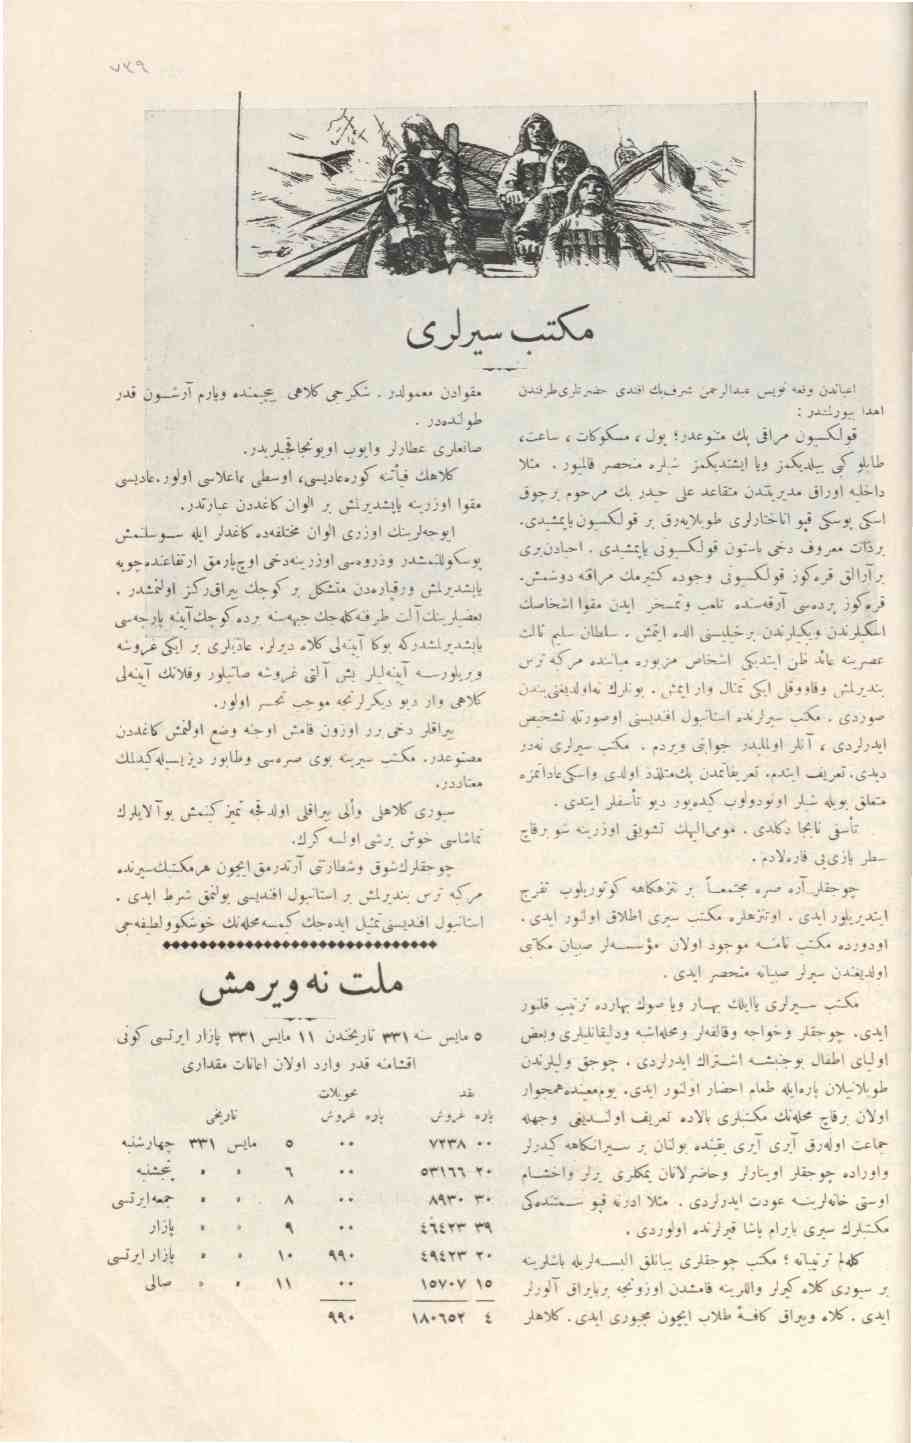 ٧٣٩
مكتب سيرلرى
اعياندن وقعه نويس عبدالرحمن شرف بك افندى حضرتلرى طرفندن
اهدا بيورلمشدر :
قولكسيون مراقى پك متنوعدر؛ پول ، مسكوكات ، ساعت،
طابلو كبى بيلديكمز ويا ايشتديكمز شيلره منحصر قالميور . مثلا
داخليه اوراق مديريتندن متقاعد على حيدر بك مرحوم برچوق
اسكى پوسكى قپو اناختارلرى طوپلايه‌رق بر قولكسيون يايمشيدى.
برذات معروف دخى باستون قولكسيونى يايمشيدى . احبادن برى
بر آرالق قره‌كوز قولكسيونى وجوده كتيرمك مراقنه دوشمش.
قره‌كوز پرده‌سى آرقه‌سنده تلعب وتمسخر ايدن مقوا اشخاصك
اسكيلرندن ويكيلرندن برخيليسنى الده ايتمش . سلطان سليم ثالث
عصرينه عائد ظن ايتديكى اشخاص مزبوره مياننده مركبه ترس
بنديرلمش وقاووقلى ايكى تمثال وار ايمش . بونلرك نه‌اولديغنى بندن
صوردى . مكتب سيرلرنده استانبول افنديسنى اوصورتله تشخيص
ايدرلردى ، آنلر اولمليدر جوابنى ويردم . مكتب سيرلرى نه‌در
ديدى. تعريف ايتدم. تعريفاتمدن پك‌متلذذ اولدى واسكى‌عاداتمزه
متعلق بويله شيلر اونودولوب كيده‌يور ديو تأسفلر ايتدى .
تأسفى نابجا دكلدى . مومى‌اليهك تشويقى اوزرينه شو برقاچ
سطر يازى‌يى قاره‌لادم.
چوجقلر آره صره مجتمعاً بر تنزهكاهه كوتوريلوب تفرج
ايتديريلور ايدى . اوتنزهلره مكتب سيرى اطلاق اولنور ايدى.
اودورده مكتب نامنه موجود اولان مؤسسه‌لر صبيان مكاتبى
اولديغندن سيرلر صبيانه منحصر ايدى .
مكتب سيرلرى ياايلك بهار ويا صوك بهارده ترتيب قلنور
ايدى. چوجقلر وخواجه وقالفه‌لر ومحله‌اشبه ودليقانليلرى وبعض
اولياى اطفال بوجنبشه اشتراك ايدرلردى . چوجق وليلرندن
طوپلانيلان پاره‌ايله طعام احضار اولنور ايدى. يوم‌معينده‌همجوار
اولان برقاچ محله‌نك مكتبلرى بالاده تعريف اولنديغى وجهله
جماعت اوله‌رق آيرى آيرى يقينده بولنان بر سيرانكاهه كيدرلر
واوراده چوجقلر اوينارلر وحاضرلانان يمكلرى يرلر واخشام
اوستى خانه‌لرينه عودت ايدرلردى . مثلا ادرنه قپو سمتنده‌كى
مكتبلرك سيرى بايرام پاشا قيرلرنده اولوردى .
كله‌لم ترتيباته ؛ مكتب چوجقلرى ييانلق البسه‌لريله باشلرينه
بر سيورى كلاه كيرلر واللرينه قامشدن اوزونجه بربايراق آلورلر
ايدى . كلاه وبيراق كافۀ طلاب ايچون مجبورى ايدى. كلاهلر
مقوادن معمولدر . شكرجى كلاهى بيچيمنده ويارم آرشون قدر
طولنده‌در .
صانعلرى عطارلر وايوب اويونجاقجيلريدر.
كلاهك قيأتنه كوره‌عاديسى، اوسطى ،اعلاسى اولور.عاديسى
مقوا اوزرينه ياپشديرلمش بر الوان كاغددن عبارتدر.
ايوجه‌لرينك اوزرى الوان مختلفه‌ده كاغدلر ايله سوسلنمش
پوسكوللنمشدر وذروه‌سى اوزرينه‌دخى اوچ‌پارمق ارتفاعنده‌چوپه
ياپشديرلمش ورقپاره‌دن متشكل بر كوچك بيراق‌ركز اولنمشدر .
بعضيلرينك آلت طرفنه‌كله‌جك جبهه‌سنه برده كوچك آيينه پارچه‌سى
ياپشديرلمشدركه بوكا آيينه‌لى كلاه ديرلر. عاديلرى بر ايكى غروشه
ويريلورسه آيينه‌ليلر بش آلتى غروشه صاتيلور وفلانك آيينه‌لى
كلاهى وار ديو ديكرلرنجه موجب تحسر اولور.
بيراقلر دخى برر اوزون قامش اوجنه وضع اولنمش كاغددن
مصنوعدر. مكتب سيرينه بوى صره‌سى وطابور ديزيسيله‌كيدلمك
معتاددر.
سيورى كلاهلى وألى بيراقلى اولدقجه تميز كينمش بو آلايلرك
تماشاسى خوش برشى اولسه كرك.
چوجقلرك‌شوق وشطارتنى آرتدرمق ايچون هرمكتبك‌سيرنده
مركبه ترس بنديرلمش بر استانبول افنديسى بولنمق شرط ايدى .
استانبول افنديسنى‌تمثيل ايده‌جك كيمسه محله‌نك خوشكوولطيفه‌جى
ملت نه ويرمش
٥ مايس سنه ٣٣١ تاريخندن ١١ مايس ٣٣١ پازار ايرتسى كونى
اقشامنه قدر وارد اولان اعانات مقدارى
نقد تحويلات
پاره غروش پاره غروش تاريخى
٠٠ ٧٢٣٨ ٠٠ ٥ مايس ٣٣١ چهارشنبه
٢٠ ٥٣١٦٦ ٠٠ ٦ » » پنجشنبه
٣٠ ٨٩٣٠ ٠٠ ٨ » » جمعه‌ايرتسى
٣٩ ٤٦٤٢٣ ٠٠ ٩ » » پازار
٢٠ ٤٩٤٢٣ ٩٩٠ ١٠ » » پازار ايرتسى
١٥ ١٥٧٠٧ ٠٠ ١١ » » صالى
٤ ١٨٠٦٥٢ ٩٩٠